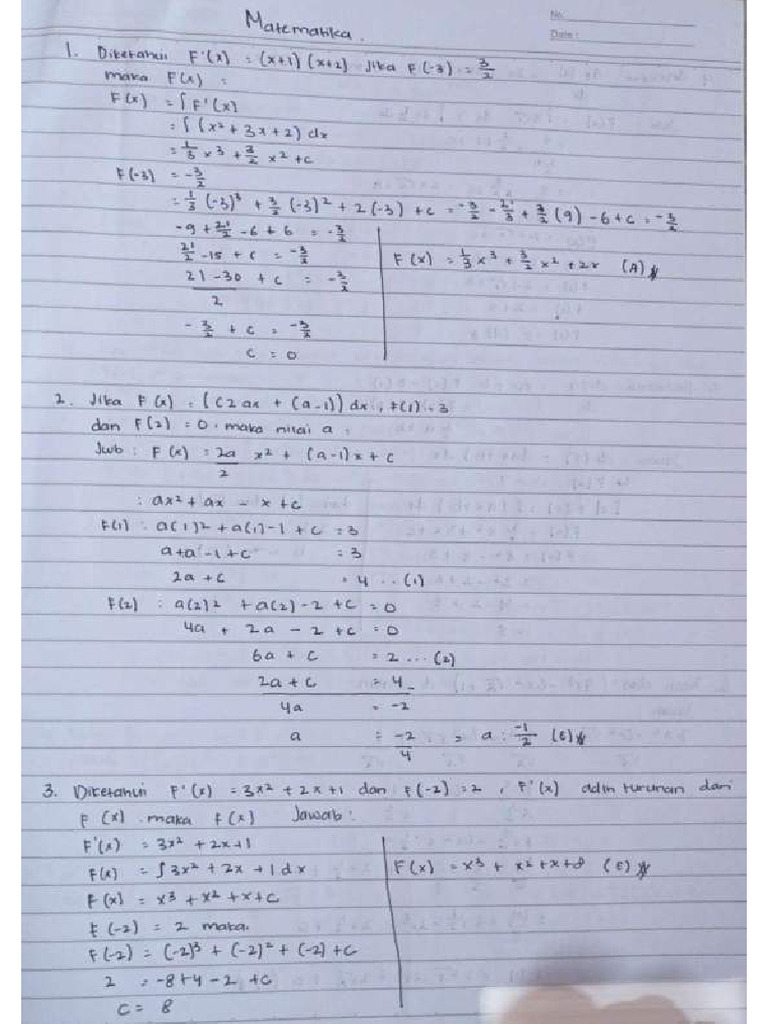 Matematika.
No.
Date:
1. Diketahui F'(x) = (x+1) (x+2) Jika F(-3) = 3/2
maka F(x) =
F(x) = ∫ F'(x)
= ∫ (x² + 3x + 2) dx
= 1/3 x³ + 3/2 x² + c
F(-3) = -3/2
= 1/3 (-3)³ + 3/2 (-3)² + 2(-3) + c = -3/2 - 27/3 + 3/2 (9) - 6 + c = -3/2
-9 + 21/2 - 6 + 6 = -3/2
21/2 - 15 + c = -3/2
21-30/2 + c = -3/2
-3/2 + c = -3/2
c = 0
F(x) = 1/3 x³ + 3/2 x² + 2x (A)
2. Jika F(x) = ∫ (2ax + (a-1)) dx, F(1) = 3
dan F(2) = 0. maka nilai a =
Jwb : F(x) = 2a/2 x² + (a-1)x + c
: ax² + ax - x + c
F(1) : a(1)² + a(1)-1 + c = 3
a+a -1+c = 3
2a + c = 4 ... (1)
F(2) : a(2)² + a(2) - 2 + c = 0
4a + 2a - 2 + c = 0
6a + c = 2 ... (2)
2a + c = 4 -
4a = -2
a = -2/4 = a : -1/2 (E)
3. Diketahui F'(x) = 3x² + 2x + 1 dan F(-2) = 2, F'(x) adlh turunan dari
F(x). maka F(x) Jawab :
F'(x) = 3x² + 2x + 1
F(x) = ∫ 3x² + 2x + 1 dx
F(x) = x³ + x² + x + c
F(-2) = 2 maka.
F(-2) = (-2)³ + (-2)² + (-2) + c
2 = -8 + 4 - 2 + c
c = 8
F(x) = x³ + x² + x + 8 (E)